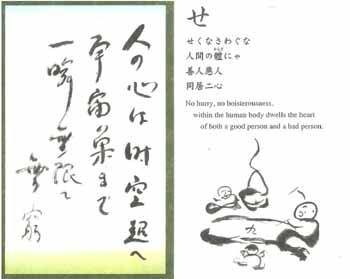 人の心は時空超へ
宇宙果まで
一瞬無限て
無窮
せ
せくなさわぐな
人間の體にゃ
善人悪人
同居二心
No hurry, no boisterousness,
within the human body dwells the heart
of both a good person and a bad person.